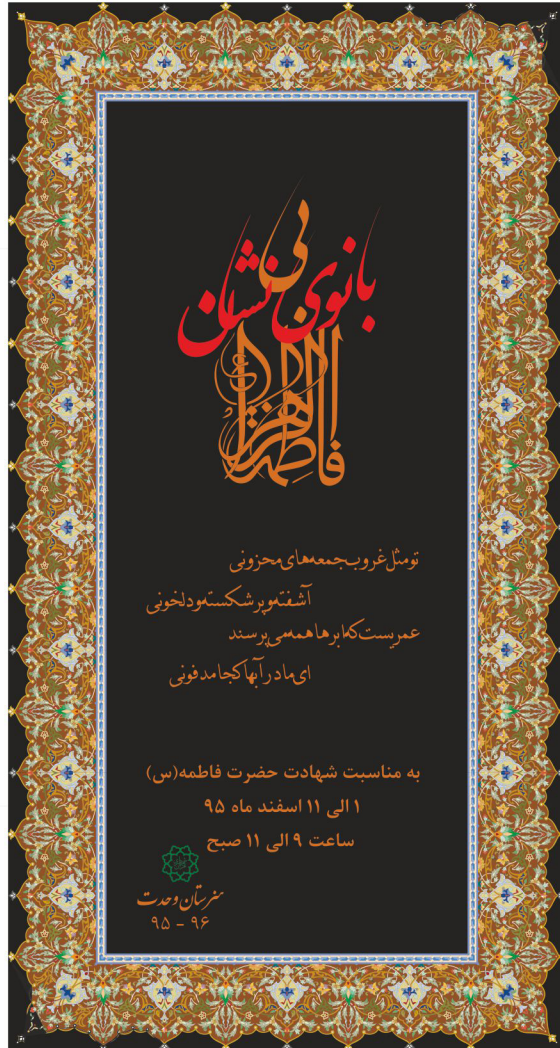 بانوی بی نشان
فاطمة الزهرا
تو مثل غروب جمعه های محزونی
آشفته و پر شکسته و دلخونی
عمریست که ابرها همه می پرسند
ای مادر آبها کجا مدفونی
به مناسبت شهادت حضرت فاطمه(س)
۱ الی ۱۱ اسفند ماه ۹۵
ساعت ۹ الی ۱۱ صبح
هنرستان وحدت
۹۵ - ۹۶